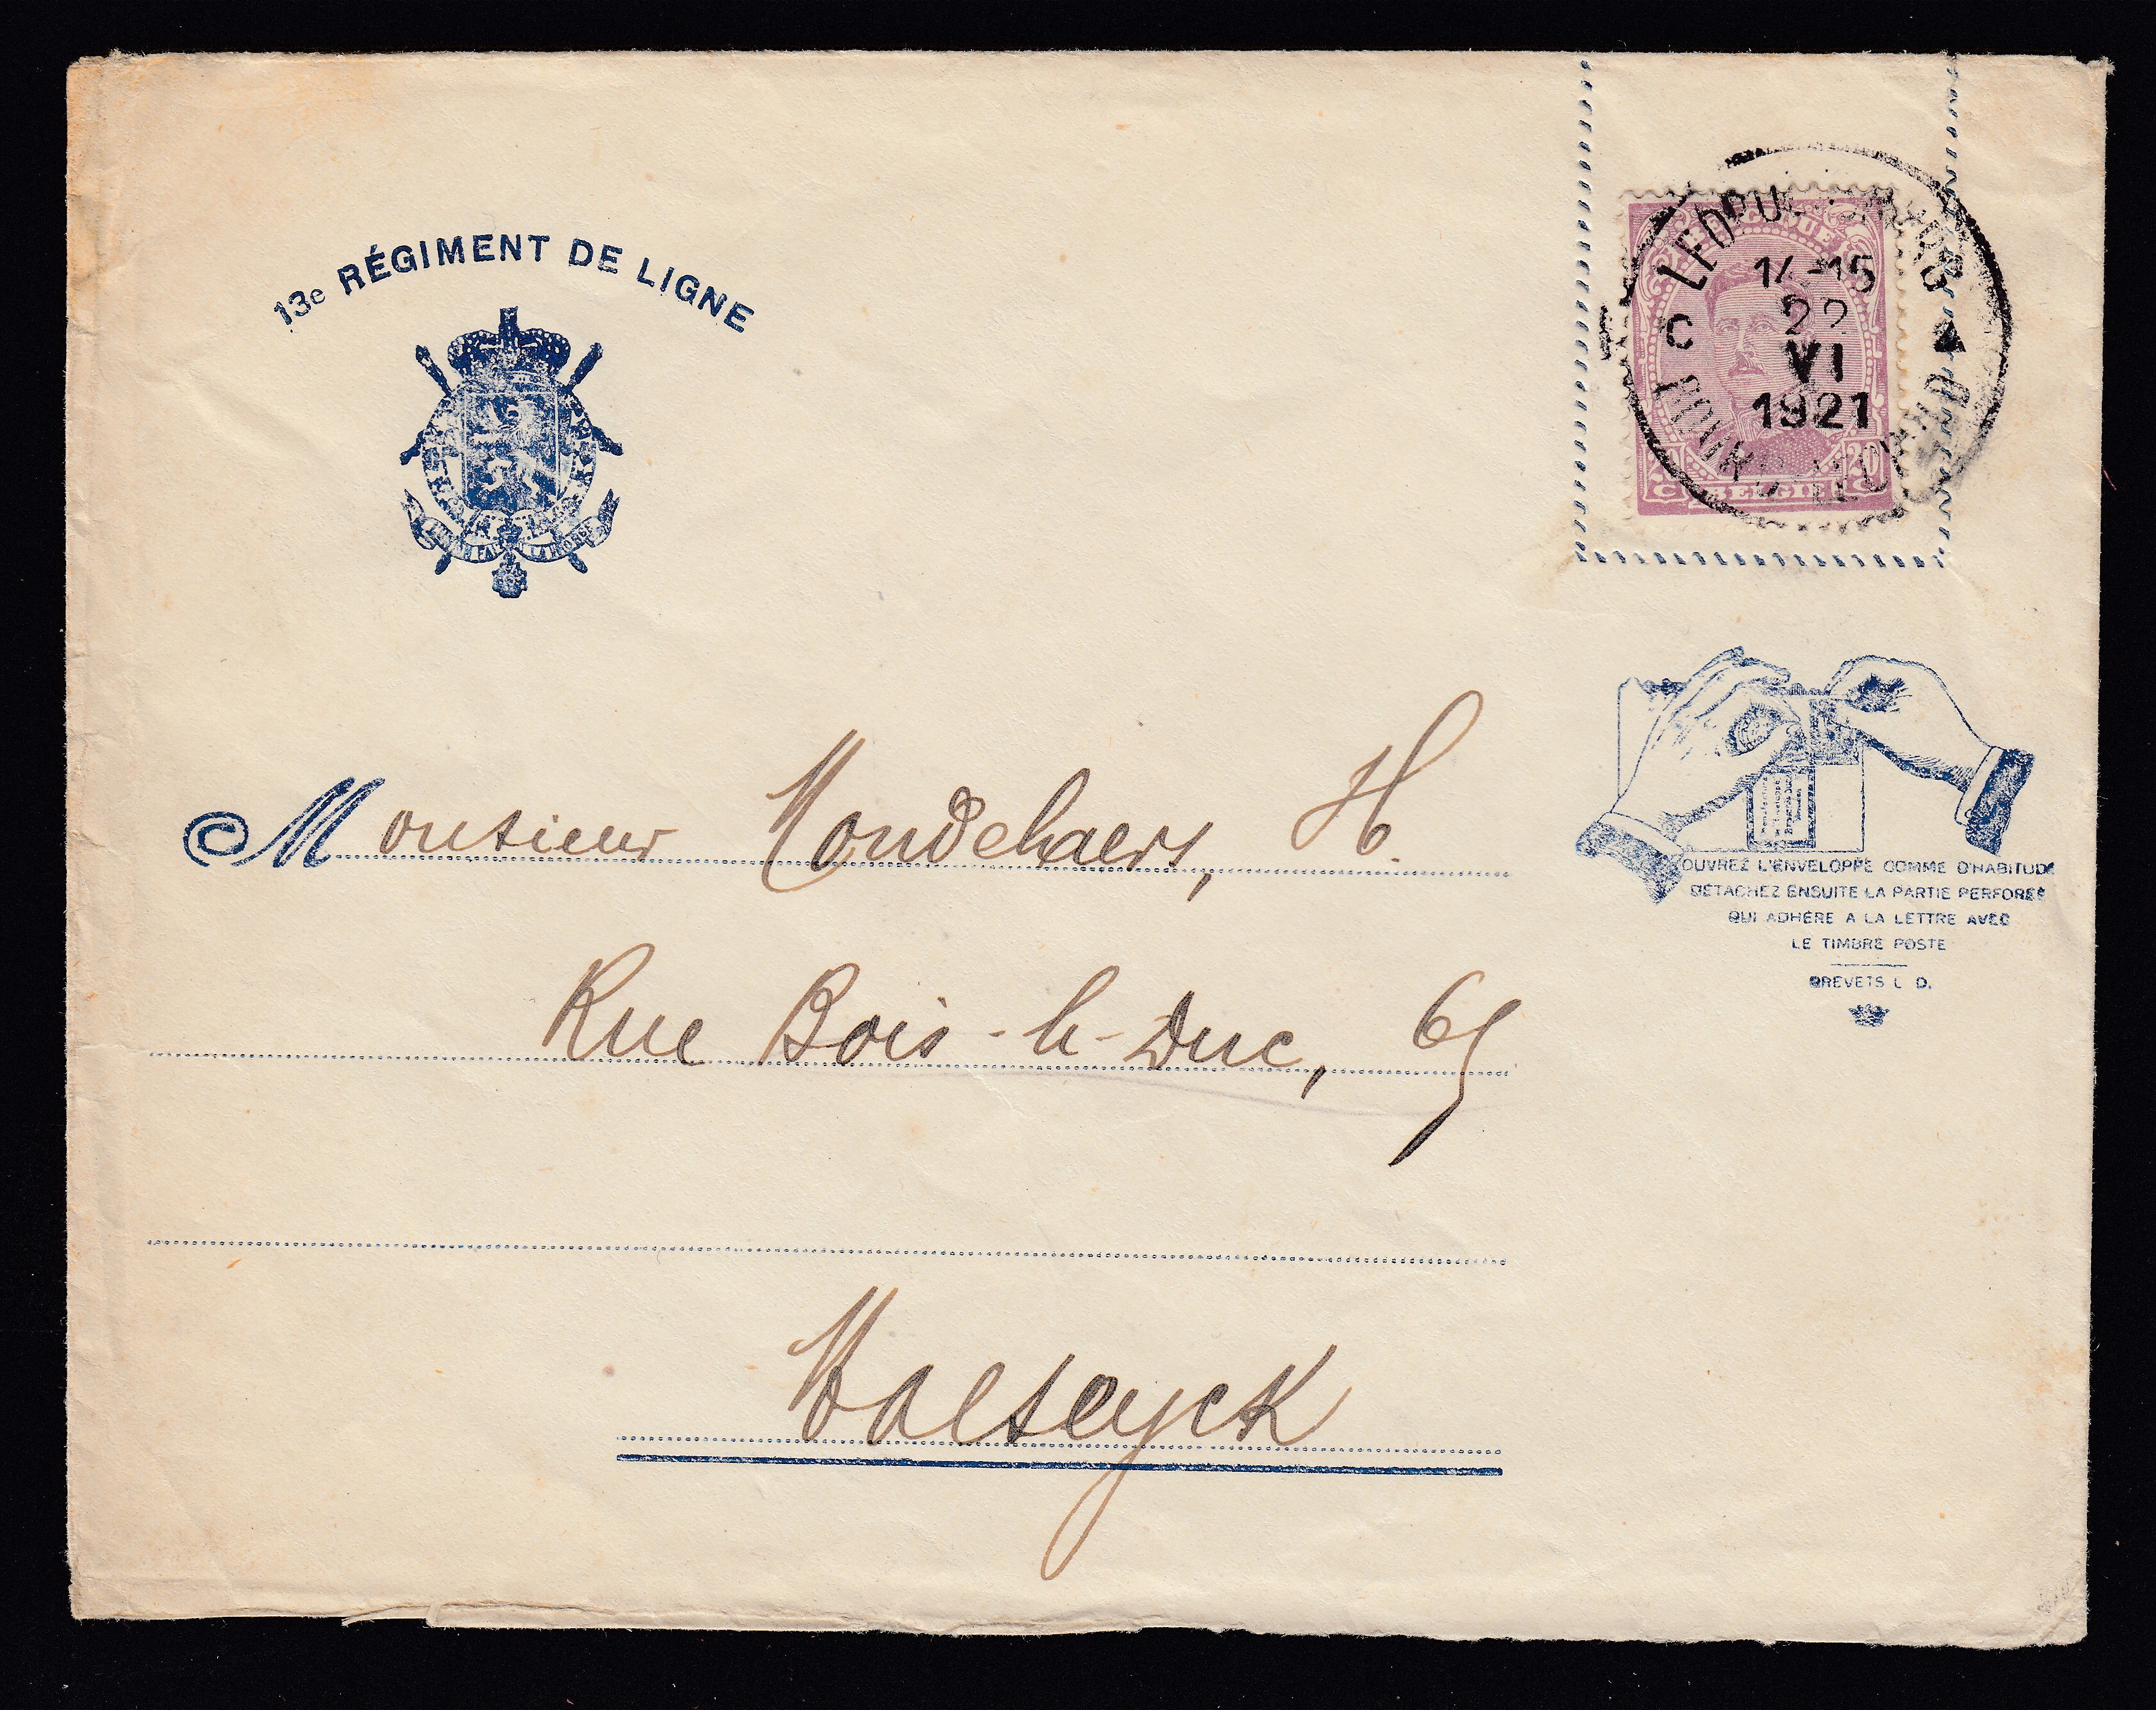 13e RÉGIMENT DE LIGNE
BELGIQUE
14-15
22
VI
1921
C
20 20
C BELGIË C
Monsieur Mondelaers, H.
Rue Bois-le-Duc, 65
Maeseyck
OUVREZ L'ENVELOPPE COMME D'HABITUDE
DÉTACHEZ ENSUITE LA PARTIE PERFORÉE
QUI ADHÈRE A LA LETTRE AVEC
LE TIMBRE POSTE
BREVETS L. D.